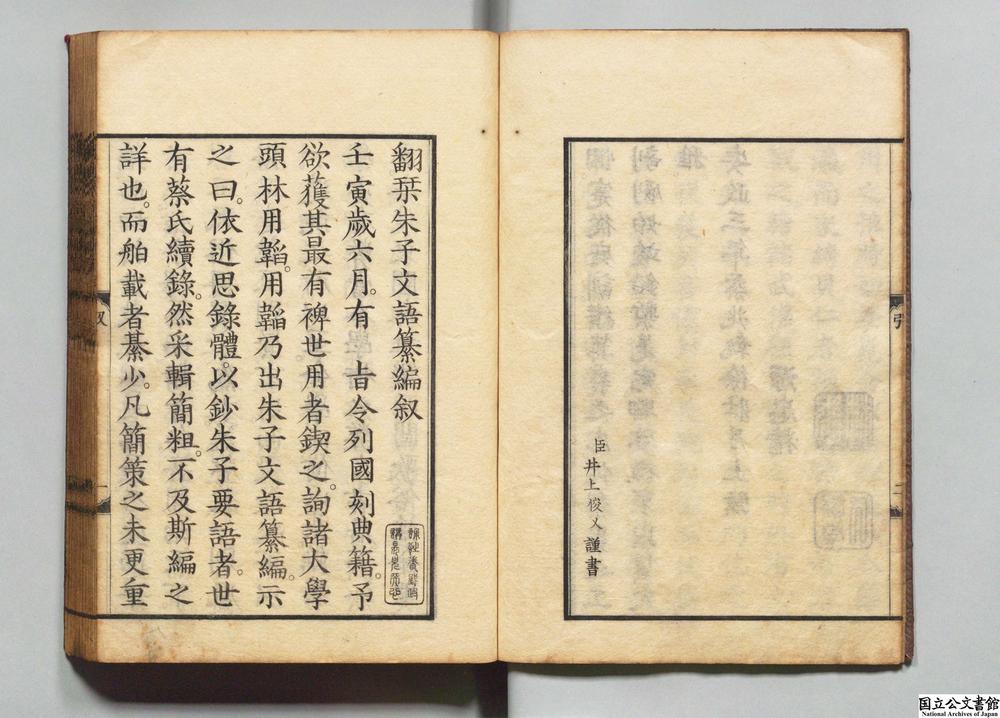 臣井上俊乂謹書
引
翻栞朱子文語纂編叙
壬寅歲六月。有 旨令列國刻典籍。予
欲獲其最有裨世用者鍥之。詢諸大學
頭林用韜。用韜乃出朱子文語纂編。示
之曰。依近思錄體。以鈔朱子要語者。世
有蔡氏續錄。然采輯簡粗。不及斯編之
詳也。而舶載者綦少。凡簡策之未更重
叙
一
国立公文書館
National Archives of Japan